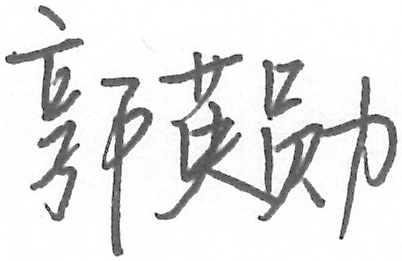 郭英勋